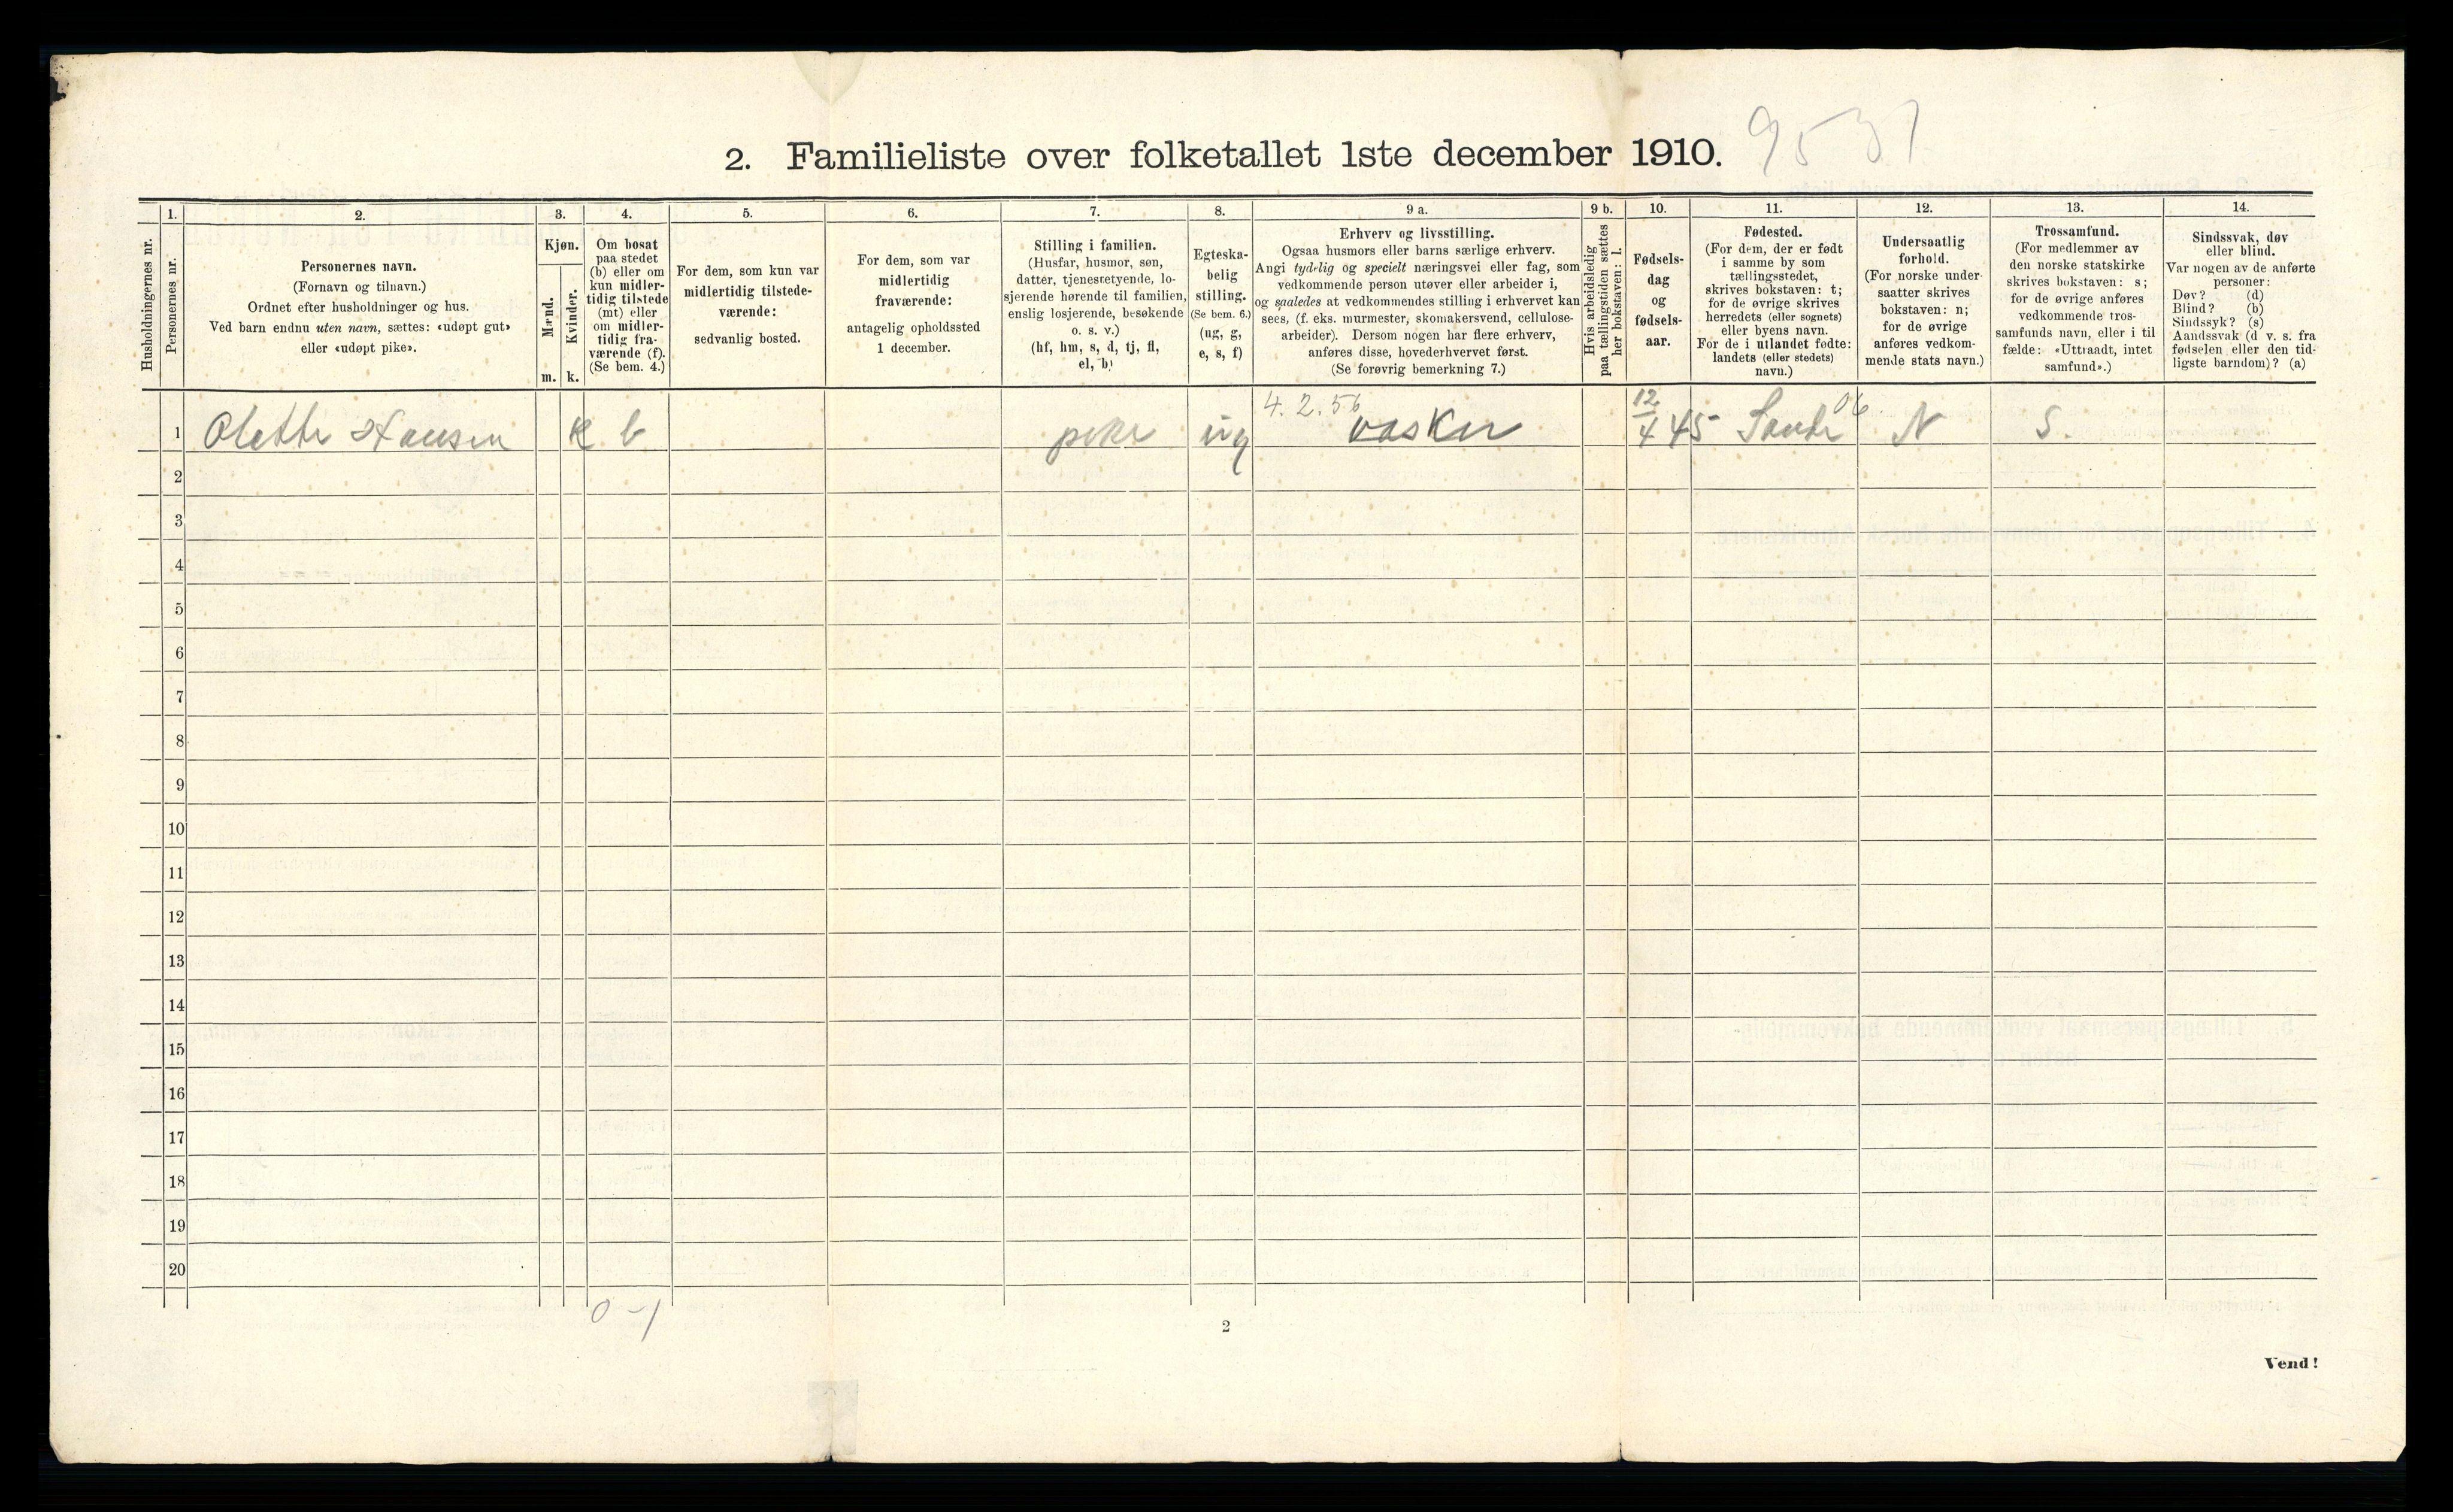 2. Familieliste over folketallet 1ste december 1910. 9531
Husholdningernes nr.
1.
Personernes nr.
2.
Personernes navn.
(Fornavn og tilnavn.)
Ordnet efter husholdninger og hus.
Ved barn endnu uten navn, sættes: «udøpt gut»
eller «udøpt pike».
3.
Kjøn.
Mænd.
Kvinder.
m. k.
4.
Om bosat
paa stedet
(b) eller om
kun midler-
tidig tilstede
(mt) eller
om midler-
tidig fra-
værende (f).
(Se bem. 4.)
5.
For dem, som kun var
midlertidig tilstede-
værende:
sedvanlig bosted.
6.
For dem, som var
midlertidig
fraværende:
antagelig opholdssted
1 december.
7.
Stilling i familien.
(Husfar, husmor, søn,
datter, tjenestetyende, lo-
sjerende hørende til familien,
enslig losjerende, besøkende
o. s. v.)
(hf, hm, s, d, tj, fl,
el, b)
8.
Egteska-
belig
stilling.
(Se bem. 6.)
(ug, g,
e, s, f)
9 a.
Erhverv og livsstilling.
Ogsaa husmors eller barns særlige erhverv.
Angi tydelig og specielt næringsvei eller fag, som
vedkommende person utøver eller arbeider i,
og saaledes at vedkommendes stilling i erhvervet kan
sees, (f. eks. murmester, skomakersvend, cellulose-
arbeider). Dersom nogen har flere erhverv,
anføres disse, hovederhvervet først.
(Se forøvrig bemerkning 7.)
9 b.
Hvis arbeidsledig
paa tællingstiden sættes
her bokstaven: l.
10.
Fødsels-
dag
og
fødsels-
aar.
11.
Fødested.
(For dem, der er født
i samme by som
tællingsstedet,
skrives bokstaven: t;
for de øvrige skrives
herredets (eller sognets)
eller byens navn.
For de i utlandet fødte:
landets (eller stedets)
navn.)
12.
Undersaatlig
forhold.
(For norske under-
saatter skrives
bokstaven: n;
for de øvrige
anføres vedkom-
mende stats navn.)
13.
Trossamfund.
(For medlemmer av
den norske statskirke
skrives bokstaven: s;
for de øvrige anføres
vedkommende tros-
samfunds navn, eller i til
fælde: «Uttraadt, intet
samfund».)
14.
Sindssvak, døv
eller blind.
Var nogen av de anførte
personer:
Døv? (d)
Blind? (b)
Sindssyk? (s)
Aandssvak (d v. s. fra
fødselen eller den tid-
ligste barndom)? (a)
4. 2. 56 12 06
1 Olette Hansen k b pike ug vasker 4 45 Sande N S.
2
3
4
5
6
7
8
9
10
11
12
13
14
15
16
17
18
19
20
0 - 1
2
Vend!